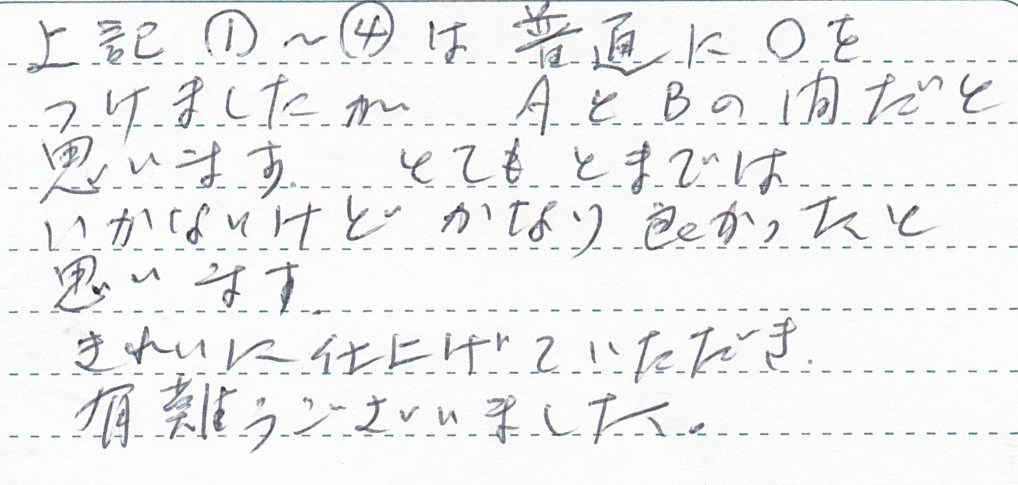 上記 ① 〜 ④ は 普通に ○を
つけましたが AとBの間だと
思います. とてもとまでは
いかないけど かなり良かったと
思います.
きれいに仕上げていただき.
有難うございました。